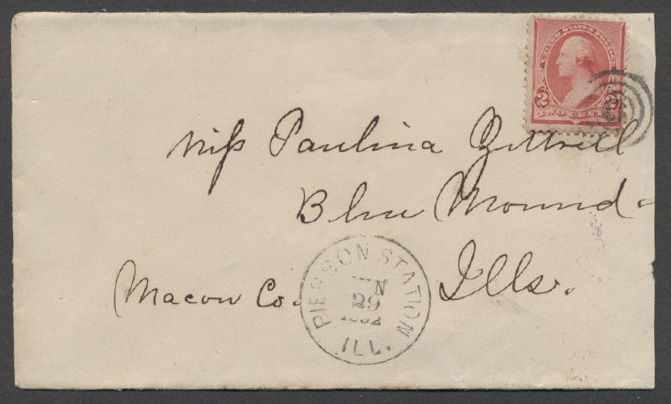 UNITED STATES POSTAGE
2
TWO CENTS
Miss Paulina
Blue Mound
Macon Co. Ills.
PIERSON STATION
29
1892
ILL.